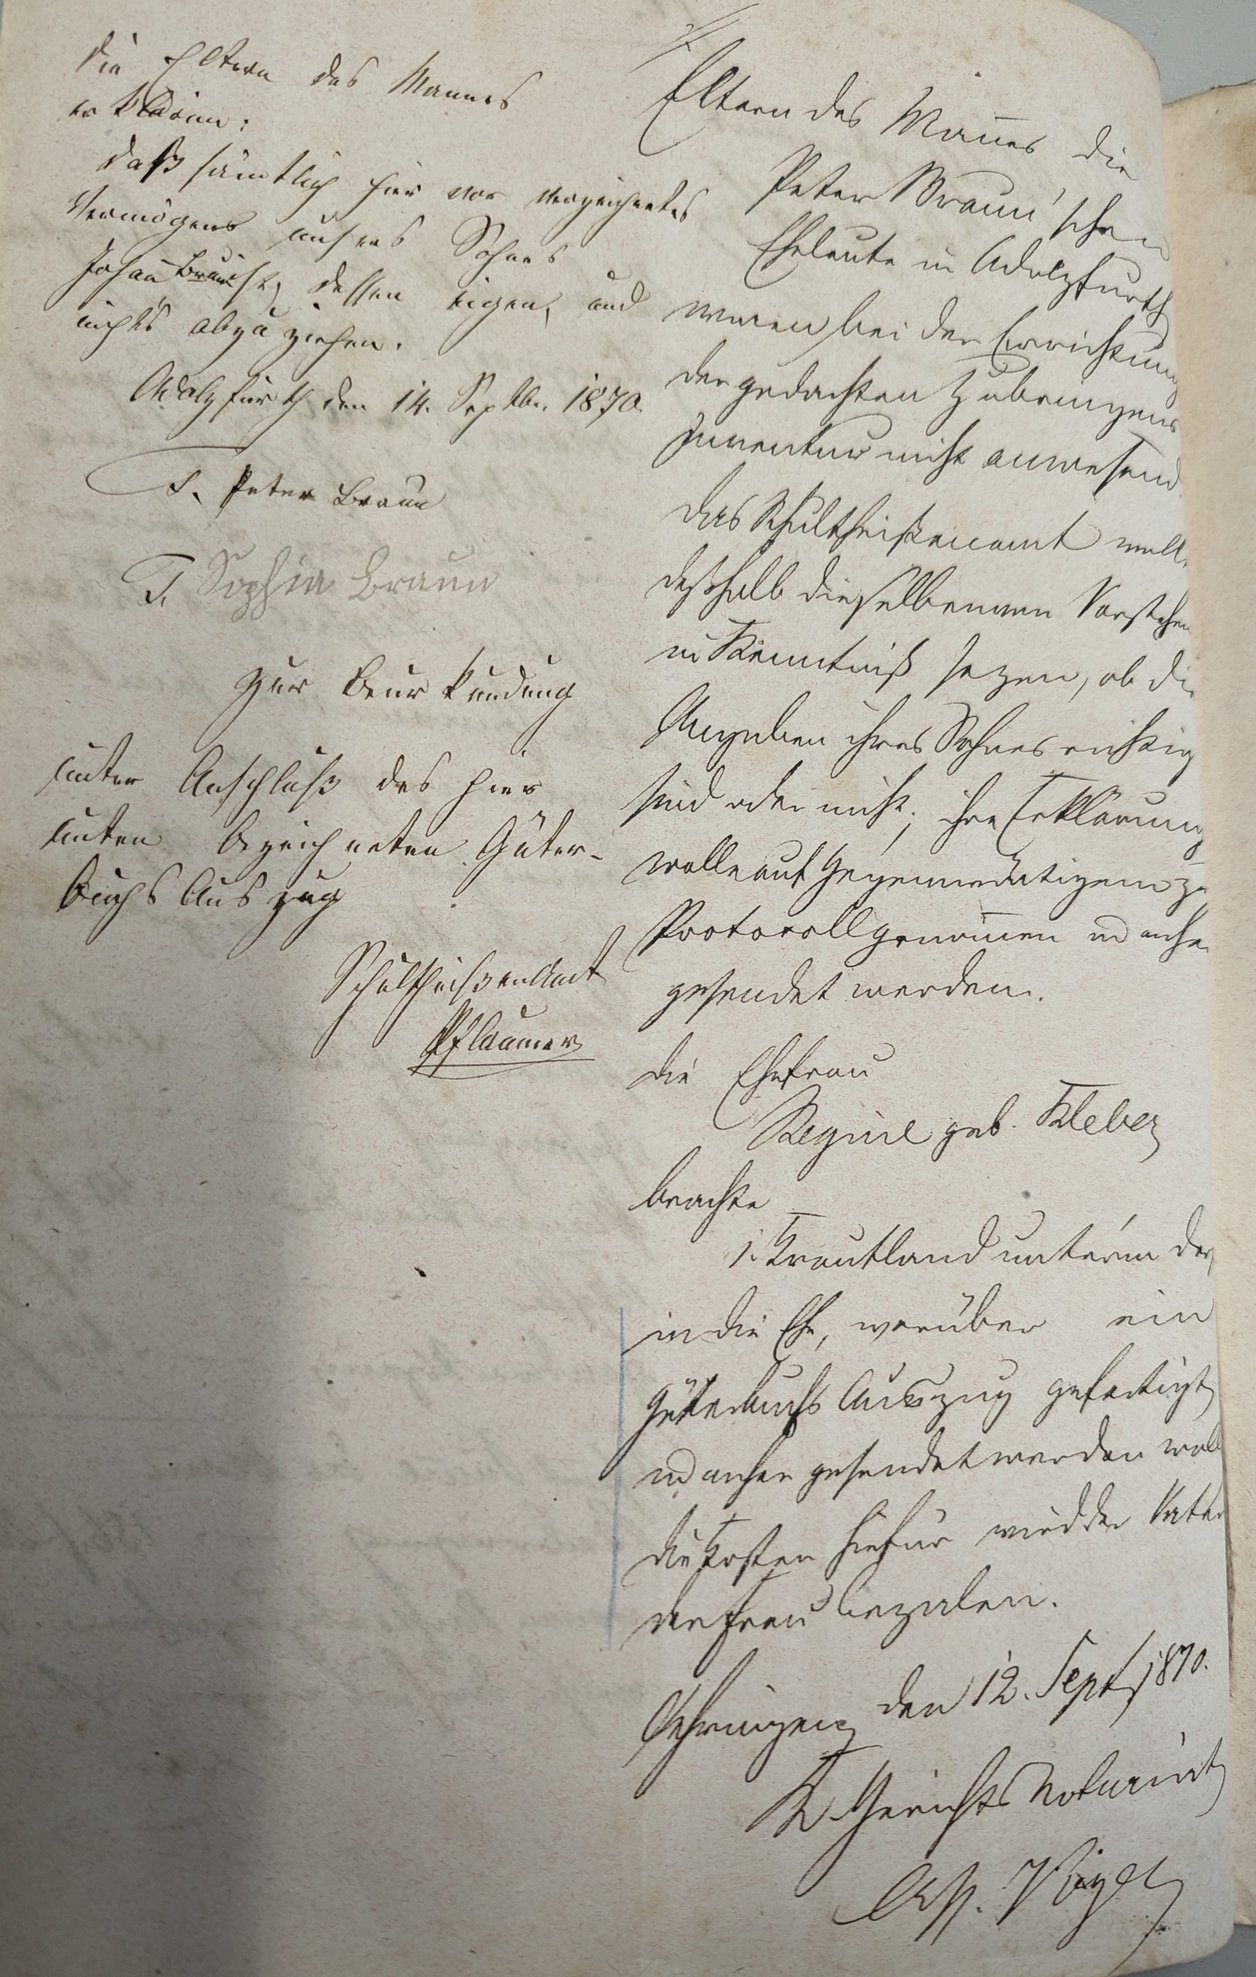 Die Eltern des Mannes
erklären:
daß sämtlich hier vor verzeichnetes
Vermögens unseres Sohnes
Johann Braun, dessen eigen, und
nichts abzuziehen.
Adolzfurth den 14. Septbr. 1870.
T. Peter Braun
T. Sophia Braun
Zur Beurkundung
unter Anschluß des hier
unten bezeichneten Güter-
buchs Auszug
Schultheißenamt
Pflaumer
Eltern des Mannes die
Peter Braun'schen
Eheleute in Adolzfurth
waren bei der Errichtung
der gedachten Zubringens
Inventur nicht anwesend.
Das Schultheißenamt wolle
deßhalb dieselben von Vorstehen
in Kenntniß sezen, ob die
Angaben ihres Sohnes richtig
sind oder nicht; ihre Erklärung
wolle auf Gegenwärtigem zu
Protocoll genomen und anher
gesendet werden.
Die Ehefrau
Regine geb. Kleber
brachte
1. Krautland unter'm
in die Ehe, worüber ein
Güterbuchs Auszug gefertigt
und anher gesendet werden woll
die Kosten hiefür wird der Vater
der Frau bezalen.
Oehringen den 12. Sept. 1870.
K. Gerichts Notariat
Ass.